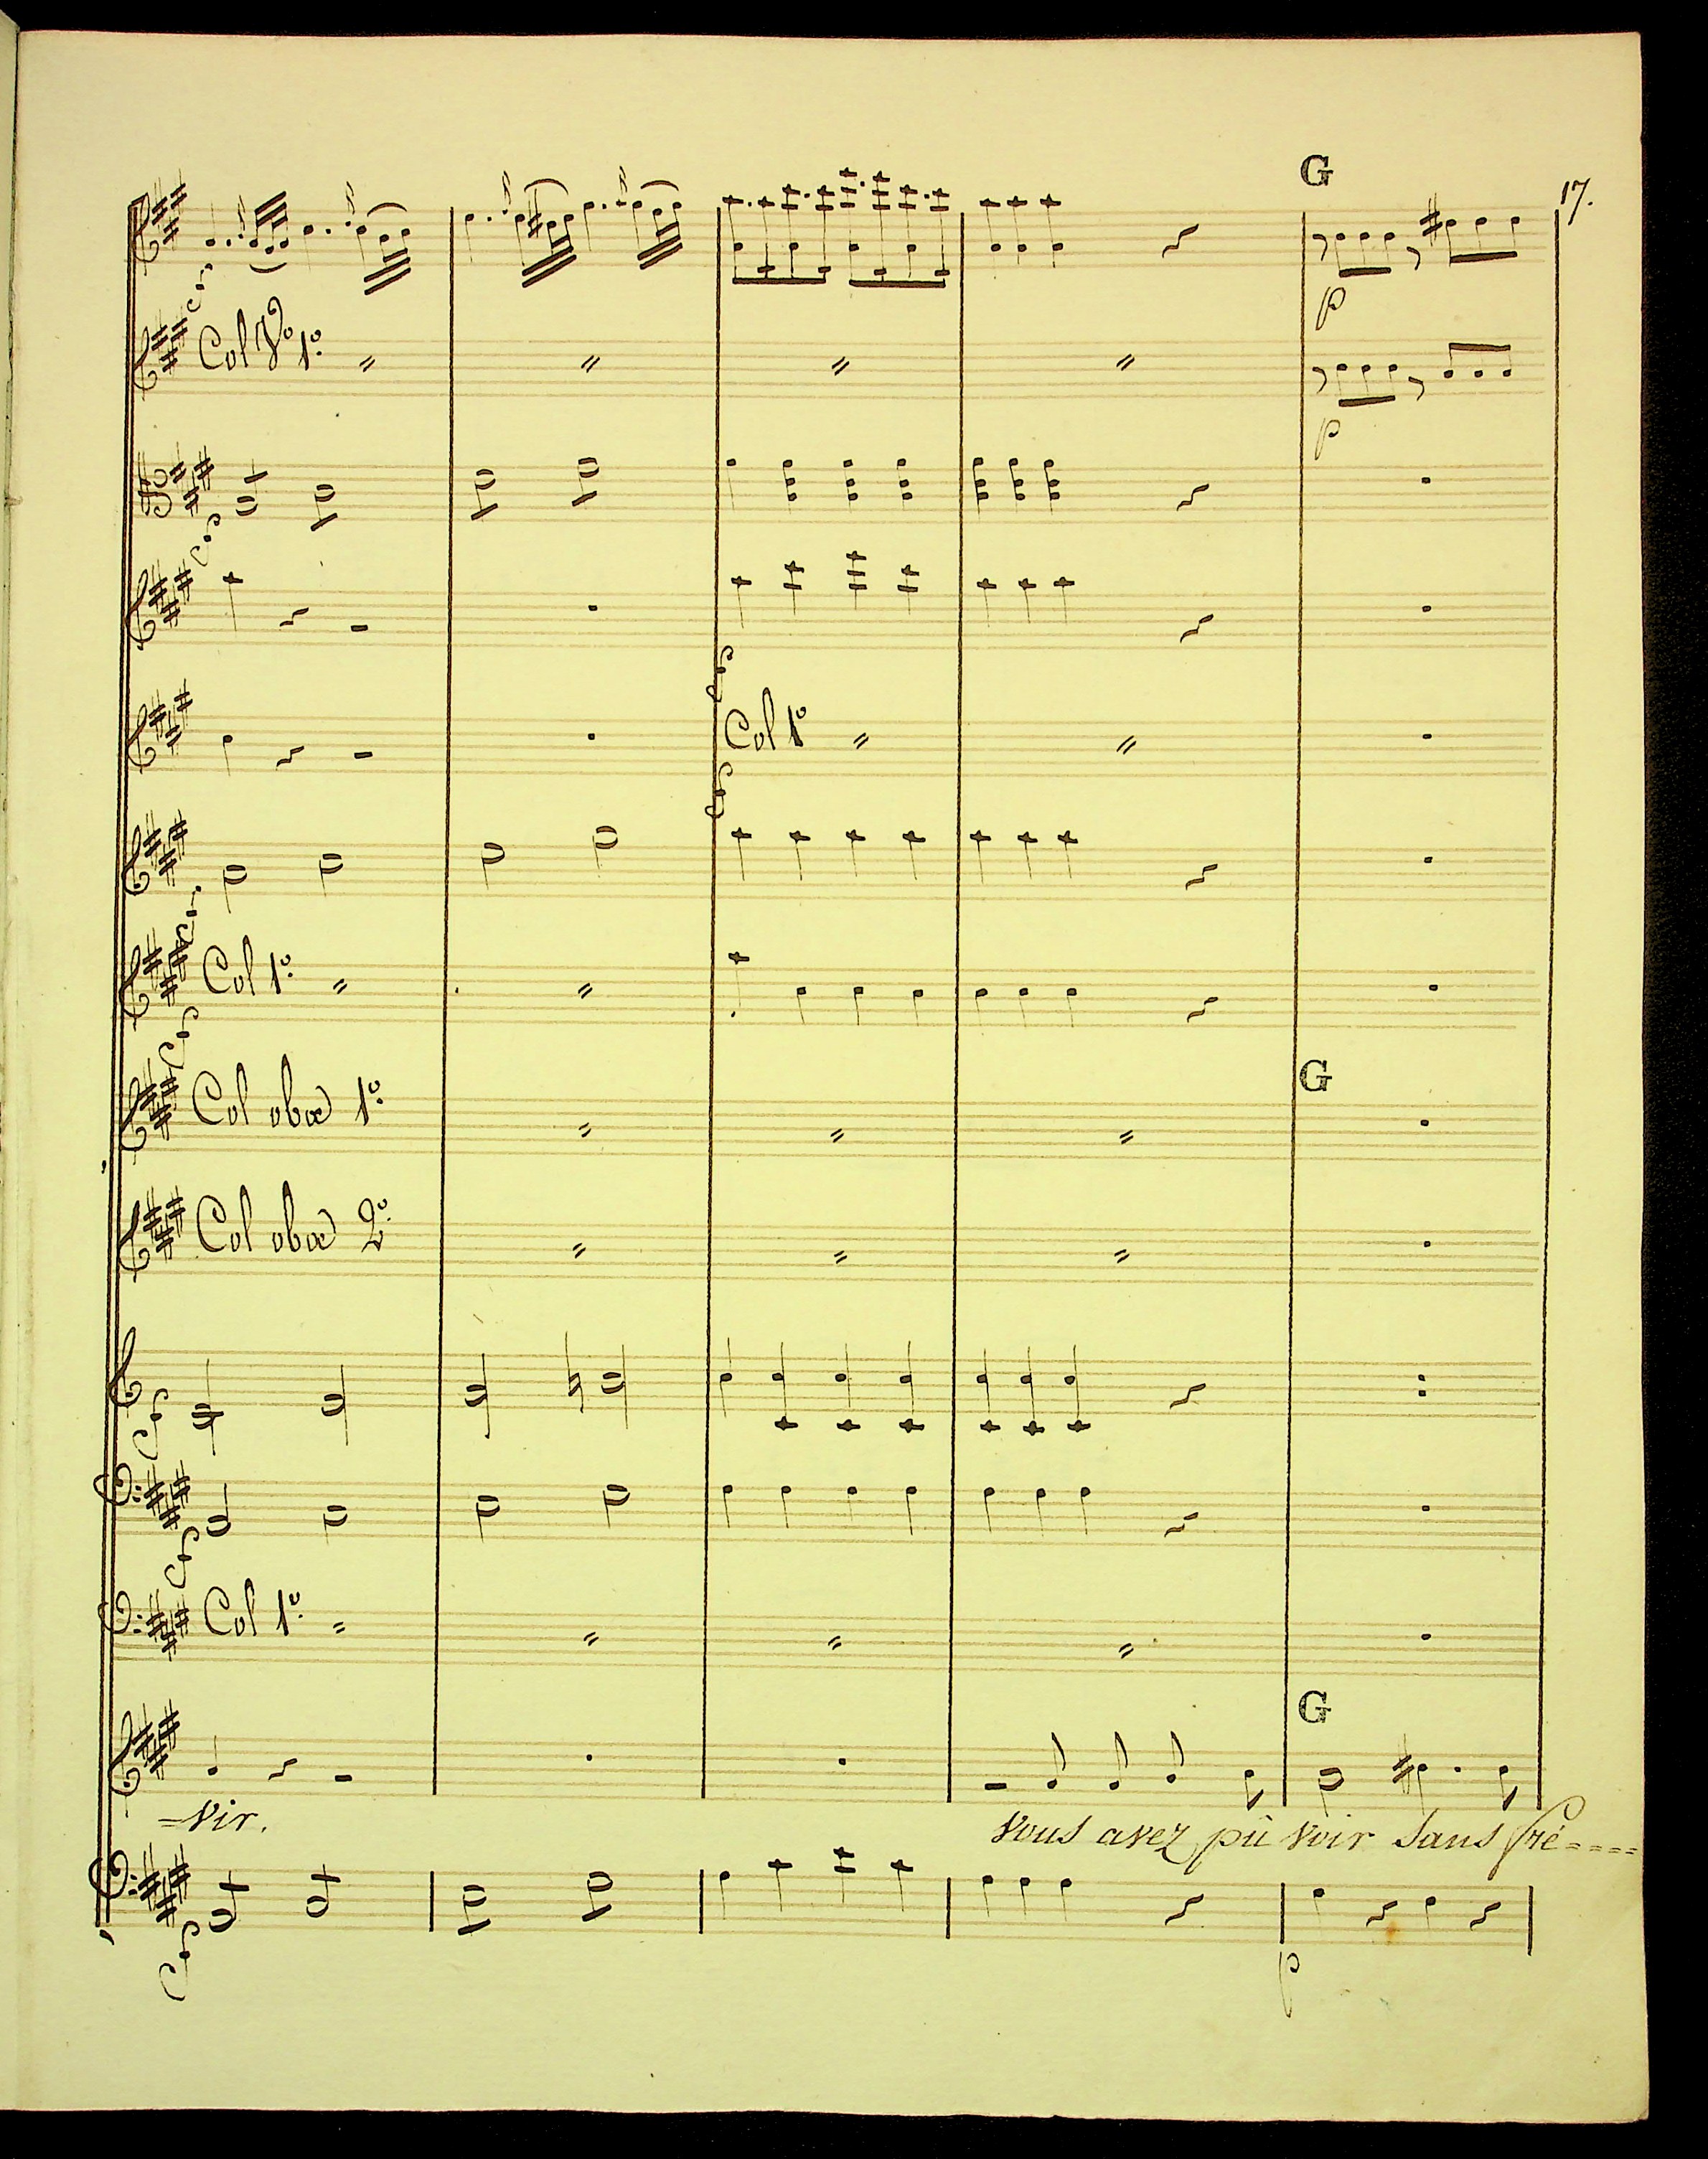 G
17.
Col Vº 1º
p
p
Col 1º
Col 1º
G
Col oboe 1º
Col oboe 2º
Col 1º
G
=vir. vous avez pû voir sans fré----
p